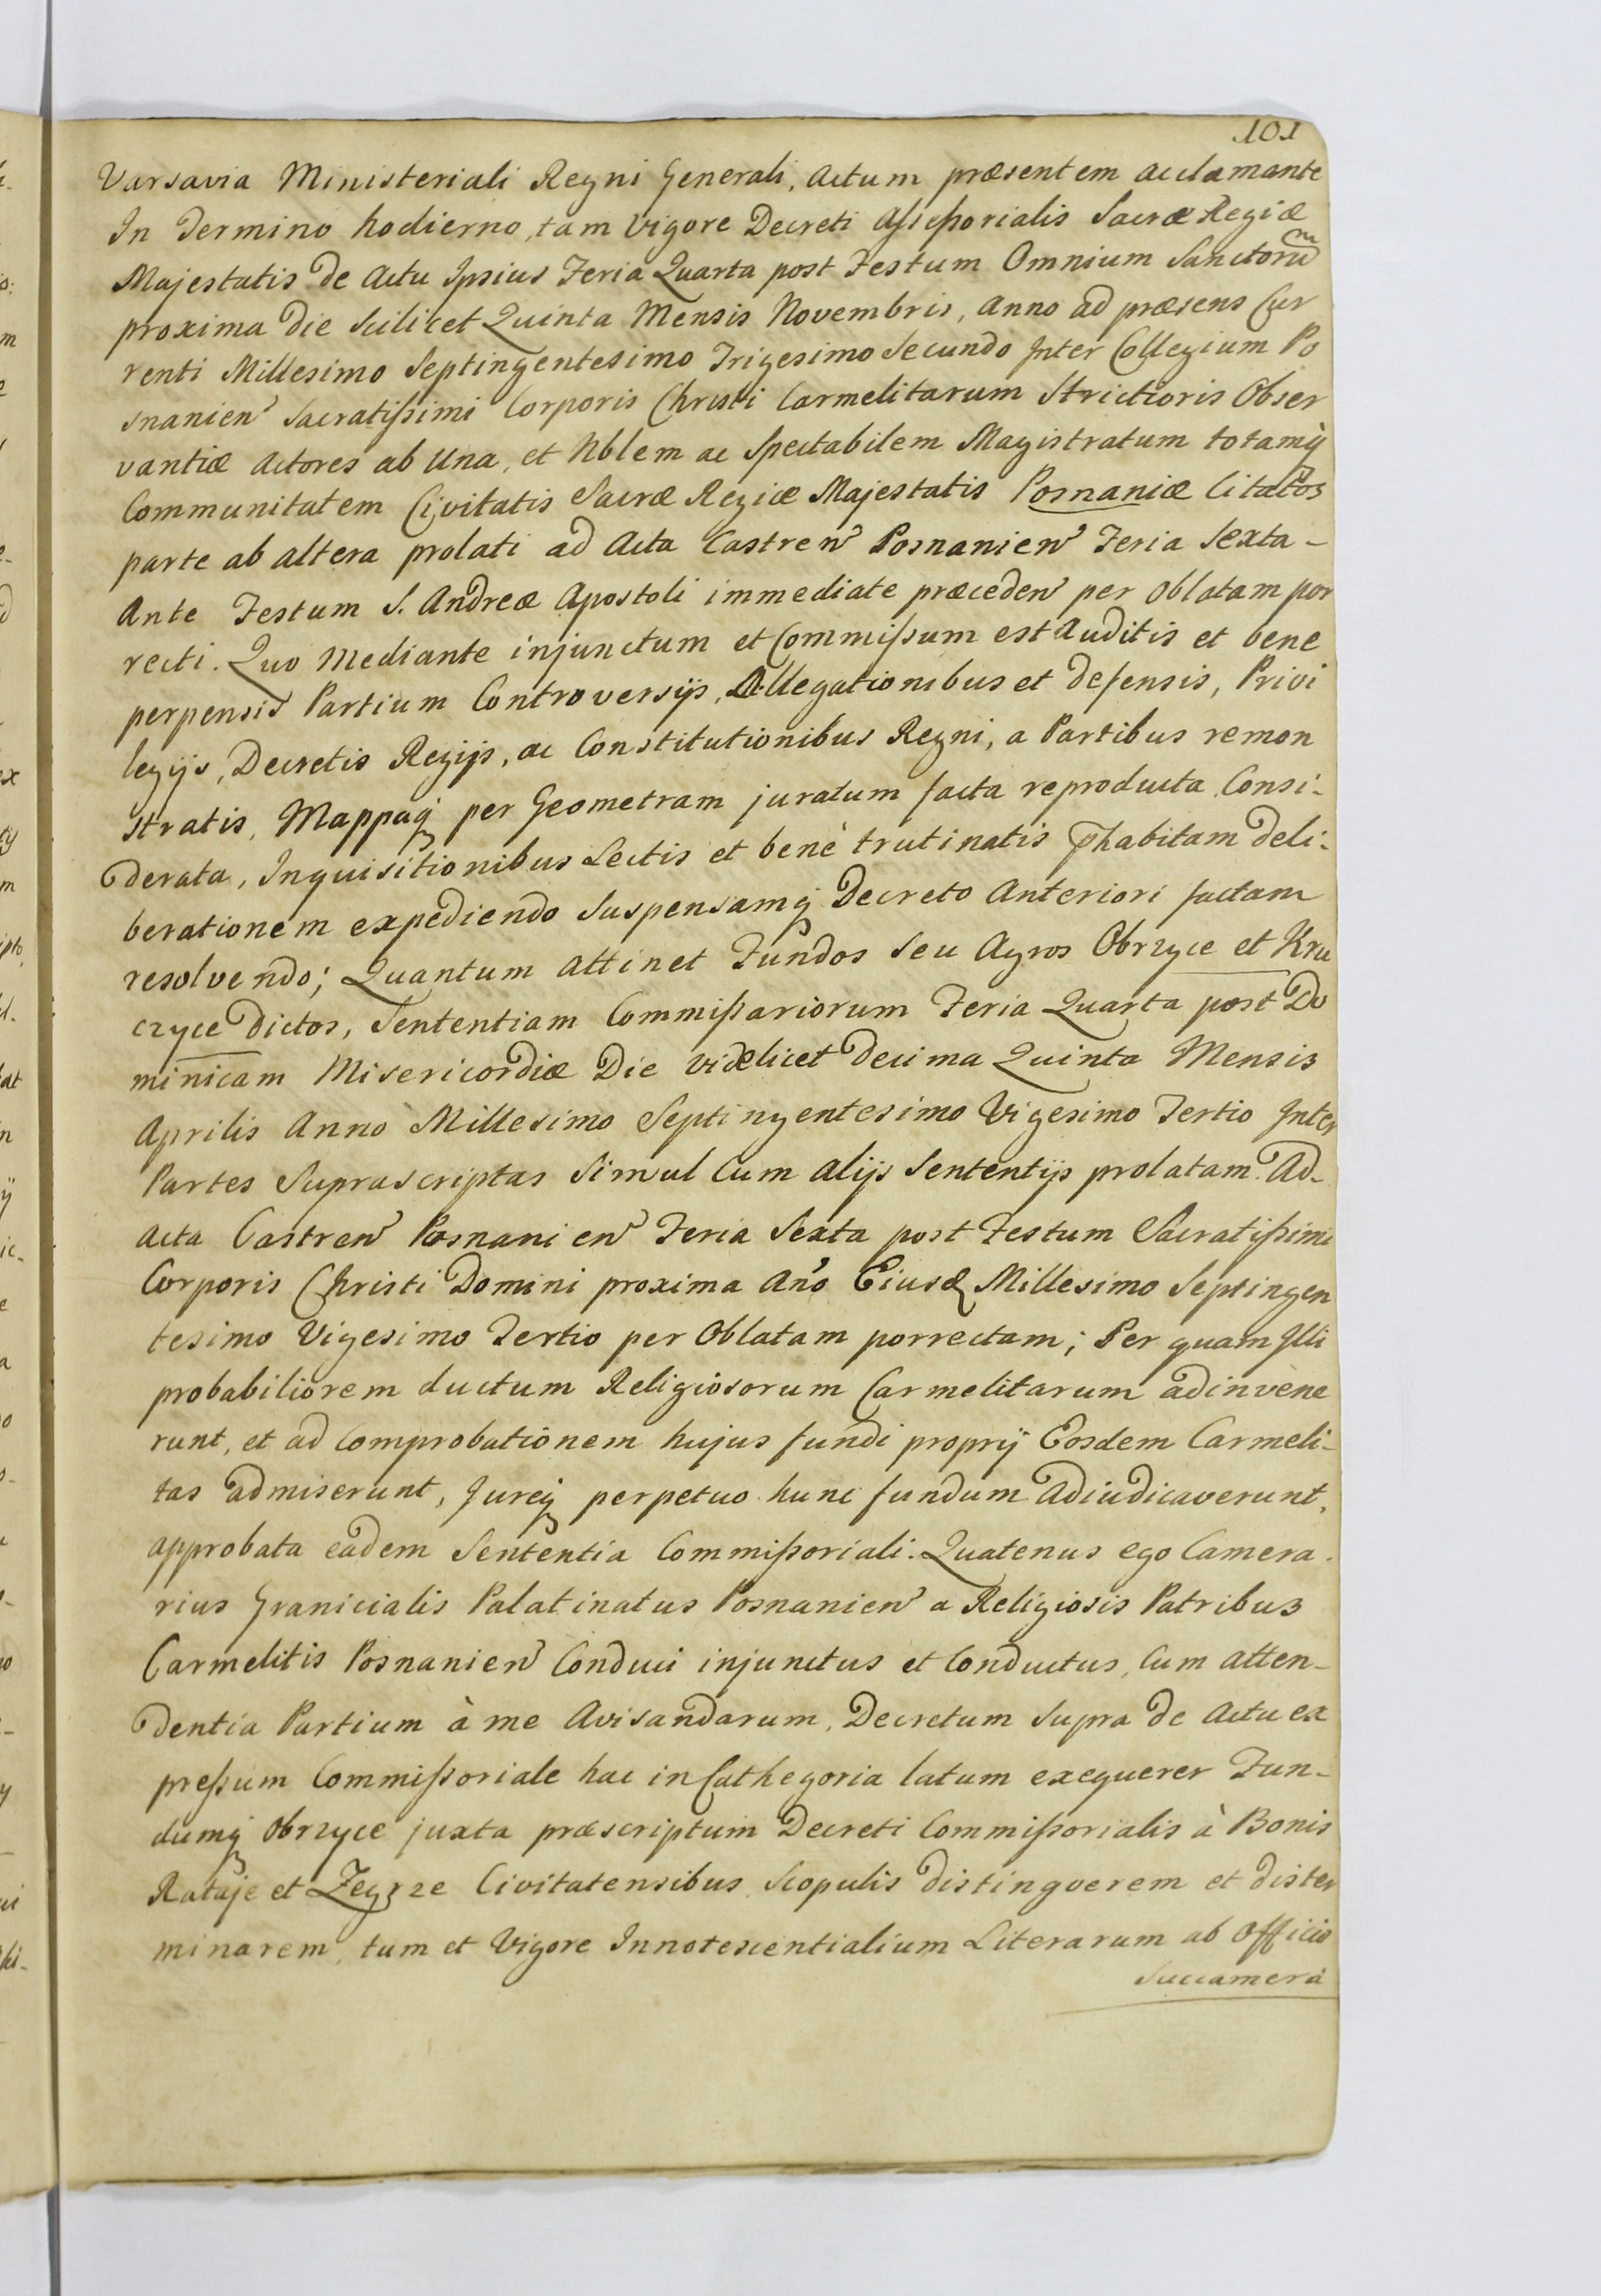 101
Varsavia Ministeriali Regni Generali, Actum præsentem acclamante
In Termino hodierno, tam vigore Decreti Assessorialis Sacræ Regiæ
Majestatis de Actu Ipsius Feria Quarta post Festum Omnium Sanctorũ
proxima die Scilicet Quinta Mensis Novembris, Anno ad præsens Cur
renti Millesimo Septingentesimo Trigesimo Secundo Inter Collegium Po
snanien Sacratissimi Corporis Christi Carmelitarum Strictioris Obser
vantiæ Actores ab Una, et Nblem ac Spectabilem Magistratum totamq
Communitatem Civitatis Sacræ Regiæ Majestatis Posnaniæ Citatos
parte ab altera prolati ad Acta Castren Posnanien Feria Sexta -
Ante Festum S. Andreæ Apostoli immediate præceden per Oblatam por
recti. Quo Mediante injunctum et Commissum est Auditis et bene
perpensis Partium Controversijs, Allegationibus et defensis, Privi
legijs, Decretis Regijs, ac Constitutionibus Regni, a Partibus remon
stratis, Mappaq per Geometram juratum facta reproducta Consi-
derata, Inquisitionibus Lectis et benè trutinatis phabitam deli-
berationem expediendo Suspensamq Decreto Anteriori factam
resolvendo; Quantum attinet Fundos Seu Agros Obrzyce et Kru
czyce dictos, Sententiam Commissariorum Feria Quarta post Do
minicam Misericordiæ Die videlicet Decima Quinta Mensis
Aprilis Anno Millesimo Septingentesimo Vigesimo Tertio Inter
Partes Suprascriptas Simul Cum alijs Sententijs prolatam Ad-
Acta Castren Posnanien Feria Sexta post Festum Sacratissimi
Corporis Christi Domini proxima Año Eiusd Millesimo Septingen
tesimo Vigesimo Tertio per Oblatam porrectam; Per quam Illi
probabiliorem ductum Religiosorum Carmelitarum adinvene
runt, et ad Comprobationem hujus fundi proprij Eosdem Carmeli-
tas admiserunt, Jureq perpetuo hunc fundum Adiudicaverunt,
approbata eadem Sententia Commissoriali. Quatenus ego Camera-
rius Granicialis Palatinatus Posnanien a Religiosis Patribus
Carmelitis Posnanien Conduci injunctus et Conductus, Cum atten-
dentia Partium à me Avisandarum, Decretum Supra de Actu ex
pressum Commissoriale hac in Cathegoria latum exequerer Fun-
dumq Obrzyce juxta præscriptum Decreti Commissorialis à Bonis
Rataje et Zegrze Civitatensibus Scopulis distinguerem et dister
minarem, tum et Vigore Innotescentialium Literarum ab Officio
Succamera